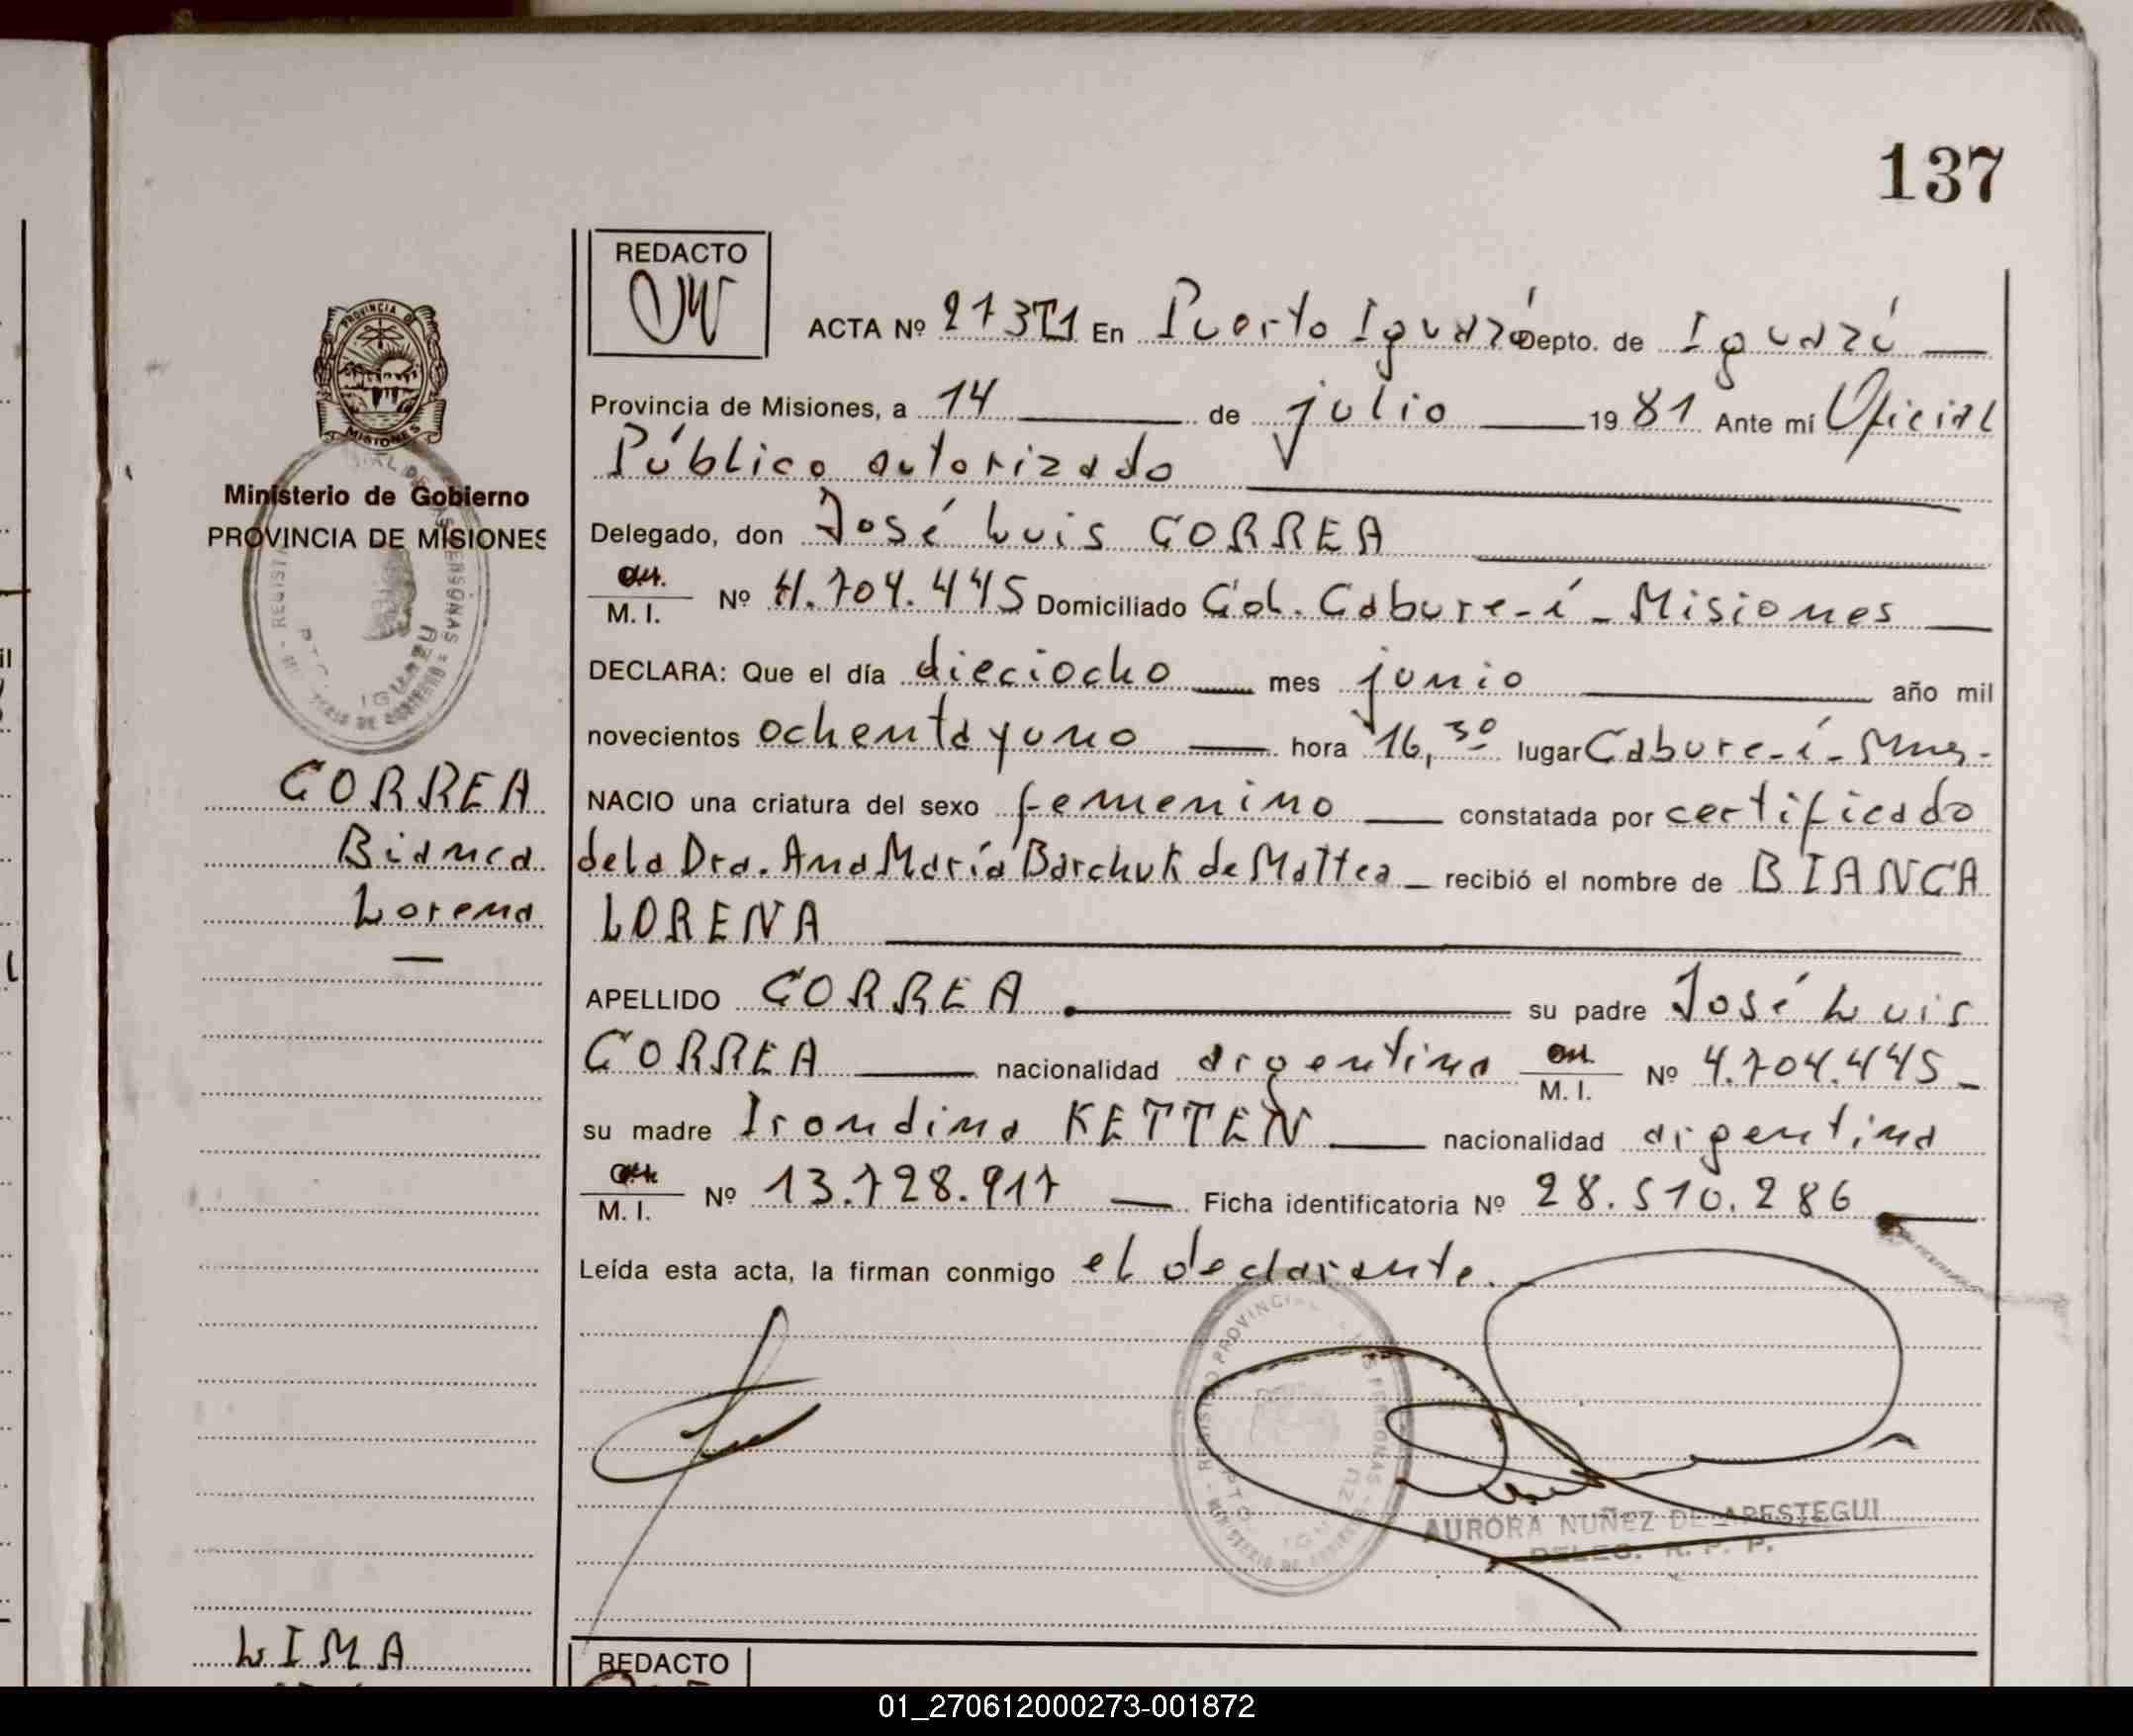 137
REDACTO
ACTA Nº 273T1 En Puerto Iguazú Depto. de Iguazú
Provincia de Misiones, a 14 de julio 1981 Ante mí Oficial
Público autorizado
Delegado, don José Luis CORREA
M. I. Nº 4.704.445 Domiciliado Col. Cabure-í - Misiones
DECLARA: Que el día dieciocho mes junio año mil
novecientos ochenta y uno hora 16,30 lugar Cabure-í - Mnes.
NACIO una criatura del sexo femenino constatada por certificado
de la Dra. Ana María Barchuk de Mattea recibió el nombre de BIANCA
LORENA
APELLIDO CORREA su padre José Luis
CORREA nacionalidad argentina M. I. Nº 4.704.445
su madre Irondina KETTEN nacionalidad argentina
M. I. Nº 13.728.917 Ficha identificatoria Nº 28.510.286
Leída esta acta, la firman conmigo el declarante.
AURORA NUÑEZ DE APESTEGUI
DELEG. R. P. P.
PROVINCIA DE
MISIONES
Ministerio de Gobierno
PROVINCIA DE MISIONES
CORREA
Bianca
Lorena
LIMA
REDACTO
01_270612000273-001872